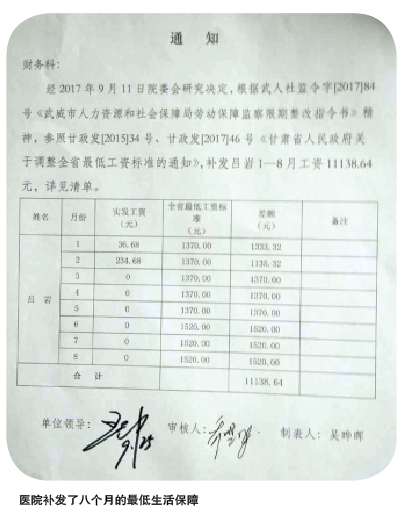 通 知
财务科:
经2017年9月11日院委会研究决定,根据武人社监令字[2017]84
号《武威市人力资源和社会保障局劳动保障监察限期整改指令书》精
神,参照甘政发[2015]34号、甘政发[2017]46号《甘肃省人民政府关
于调整全省最低工资标准的通知》,补发吕岩1—8月工资11138.64
元,详见清单。
姓名 月份 实发工资(元) 全省最低工资标准(元) 差额(元) 备注
吕岩
1 36.68 1370.00 1333.32
2 234.68 1370.00 1135.32
3 0 1370.00 1370.00
4 0 1370.00 1370.00
5 0 1370.00 1370.00
6 0 1520.00 1520.00
7 0 1520.00 1520.00
8 0 1520.00 1520.00
合 计 11138.64
单位领导: 审核人: 制表人:吴晔晖
医院补发了八个月的最低生活保障